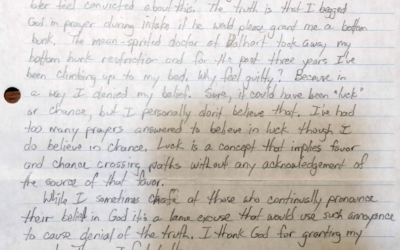 later feel convicted about this. The truth is that I begged
God in prayer during intake if he would please grant me a bottom
bunk. The mean-spirited doctor of Dalhart took away my
bottom bunk restriction and for the past three years I've
been climbing up to my bed. Why feel guilty? Because in
a way I denied my belief. Sure, it could have been "luck"
or chance, but I personally don't believe that. I've had
too many prayers answered to believe in luck though I
do believe in chance. Luck is a concept that implies favor
and chance crossing paths without any acknowledgement of
the source of that favor.
While I sometimes chafe at those who continually pronounce
their belief in God it's a lame excuse that would use such annoyance
to cause denial of the truth. I thank God for granting my